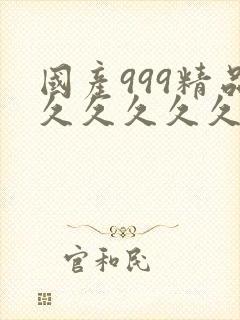 國產999精品
久久久久久
官和民